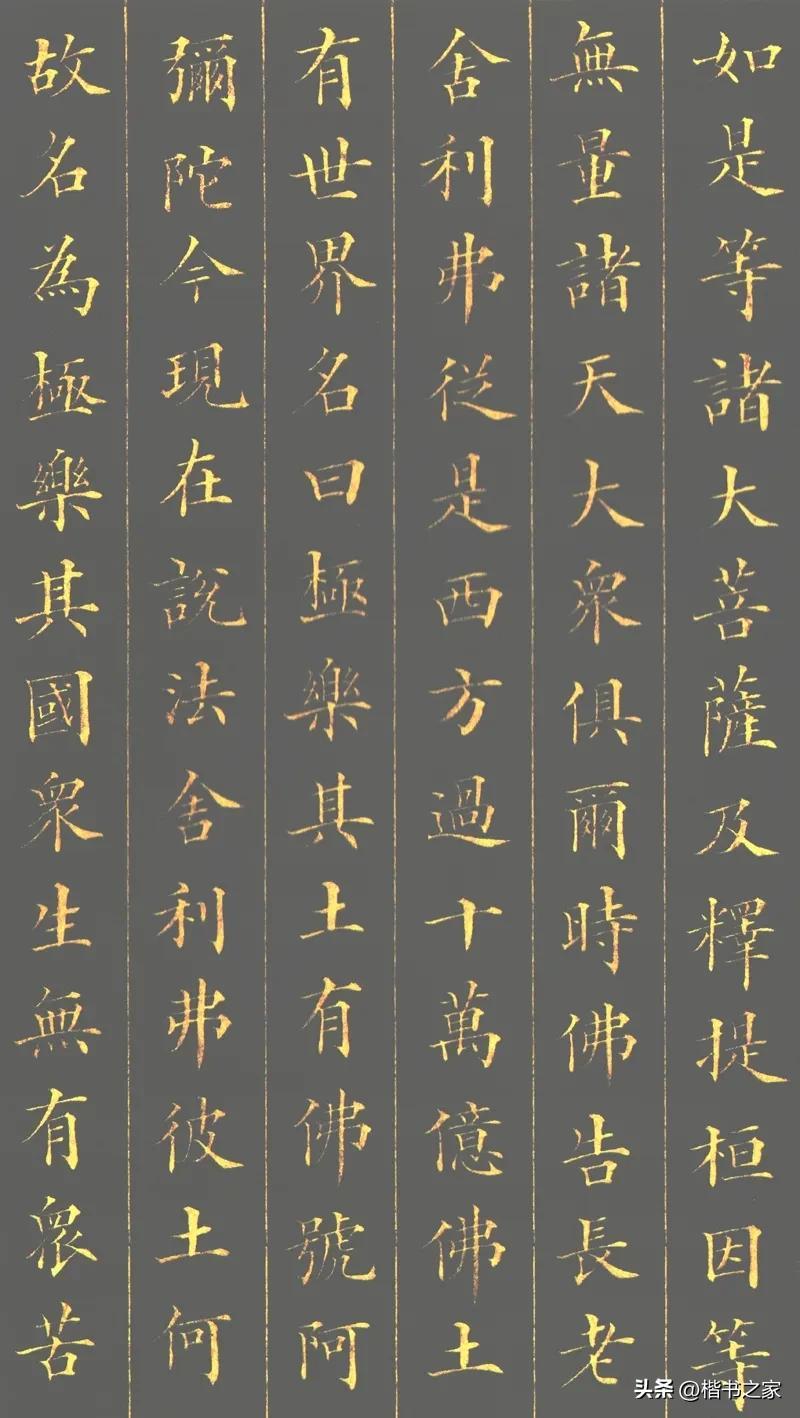 如是等諸大菩薩及釋提桓因等
無量諸天大衆俱爾時佛告長老
舍利弗從是西方過十萬億佛土
有世界名曰極樂其土有佛號阿
彌陀今現在說法舍利弗彼土何
故名為極樂其國衆生無有衆苦
头条 @楷书之家